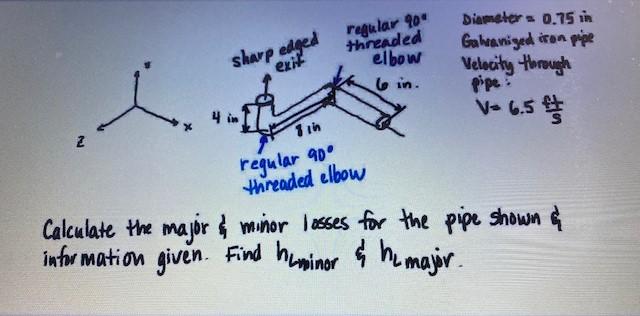 sharp edged
exit
regular 90°
threaded
elbow
6 in.
4 in
8 in
regular 90°
threaded elbow
y
x
z
Diameter = 0.75 in
Galvanized iron pipe
Velocity through
pipe:
V= 6.5 ft/s
Calculate the major & minor losses for the pipe shown &
information given. Find hLminor & hL major.